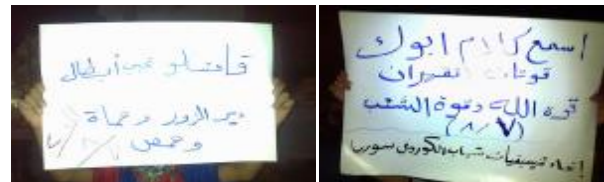 قاتلو عن أبطال
دير الزور وحماة
وحمص
اسمع كلام ابوك
قوتان
قوة الله وقوة الشعب
(٨/٧)
إتحاد تنسيقيات شباب الكورد في سوريا